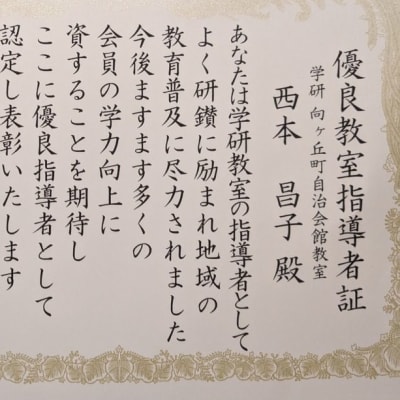 優良教室指導者証
学研 向ヶ丘町自治会館教室
西本 昌子 殿
あなたは学研教室の指導者として
よく研鑽に励まれ地域の
教育普及に尽力されました
今後ますます多くの
会員の学力向上に
資することを期待し
ここに優良指導者として
認定し表彰いたします